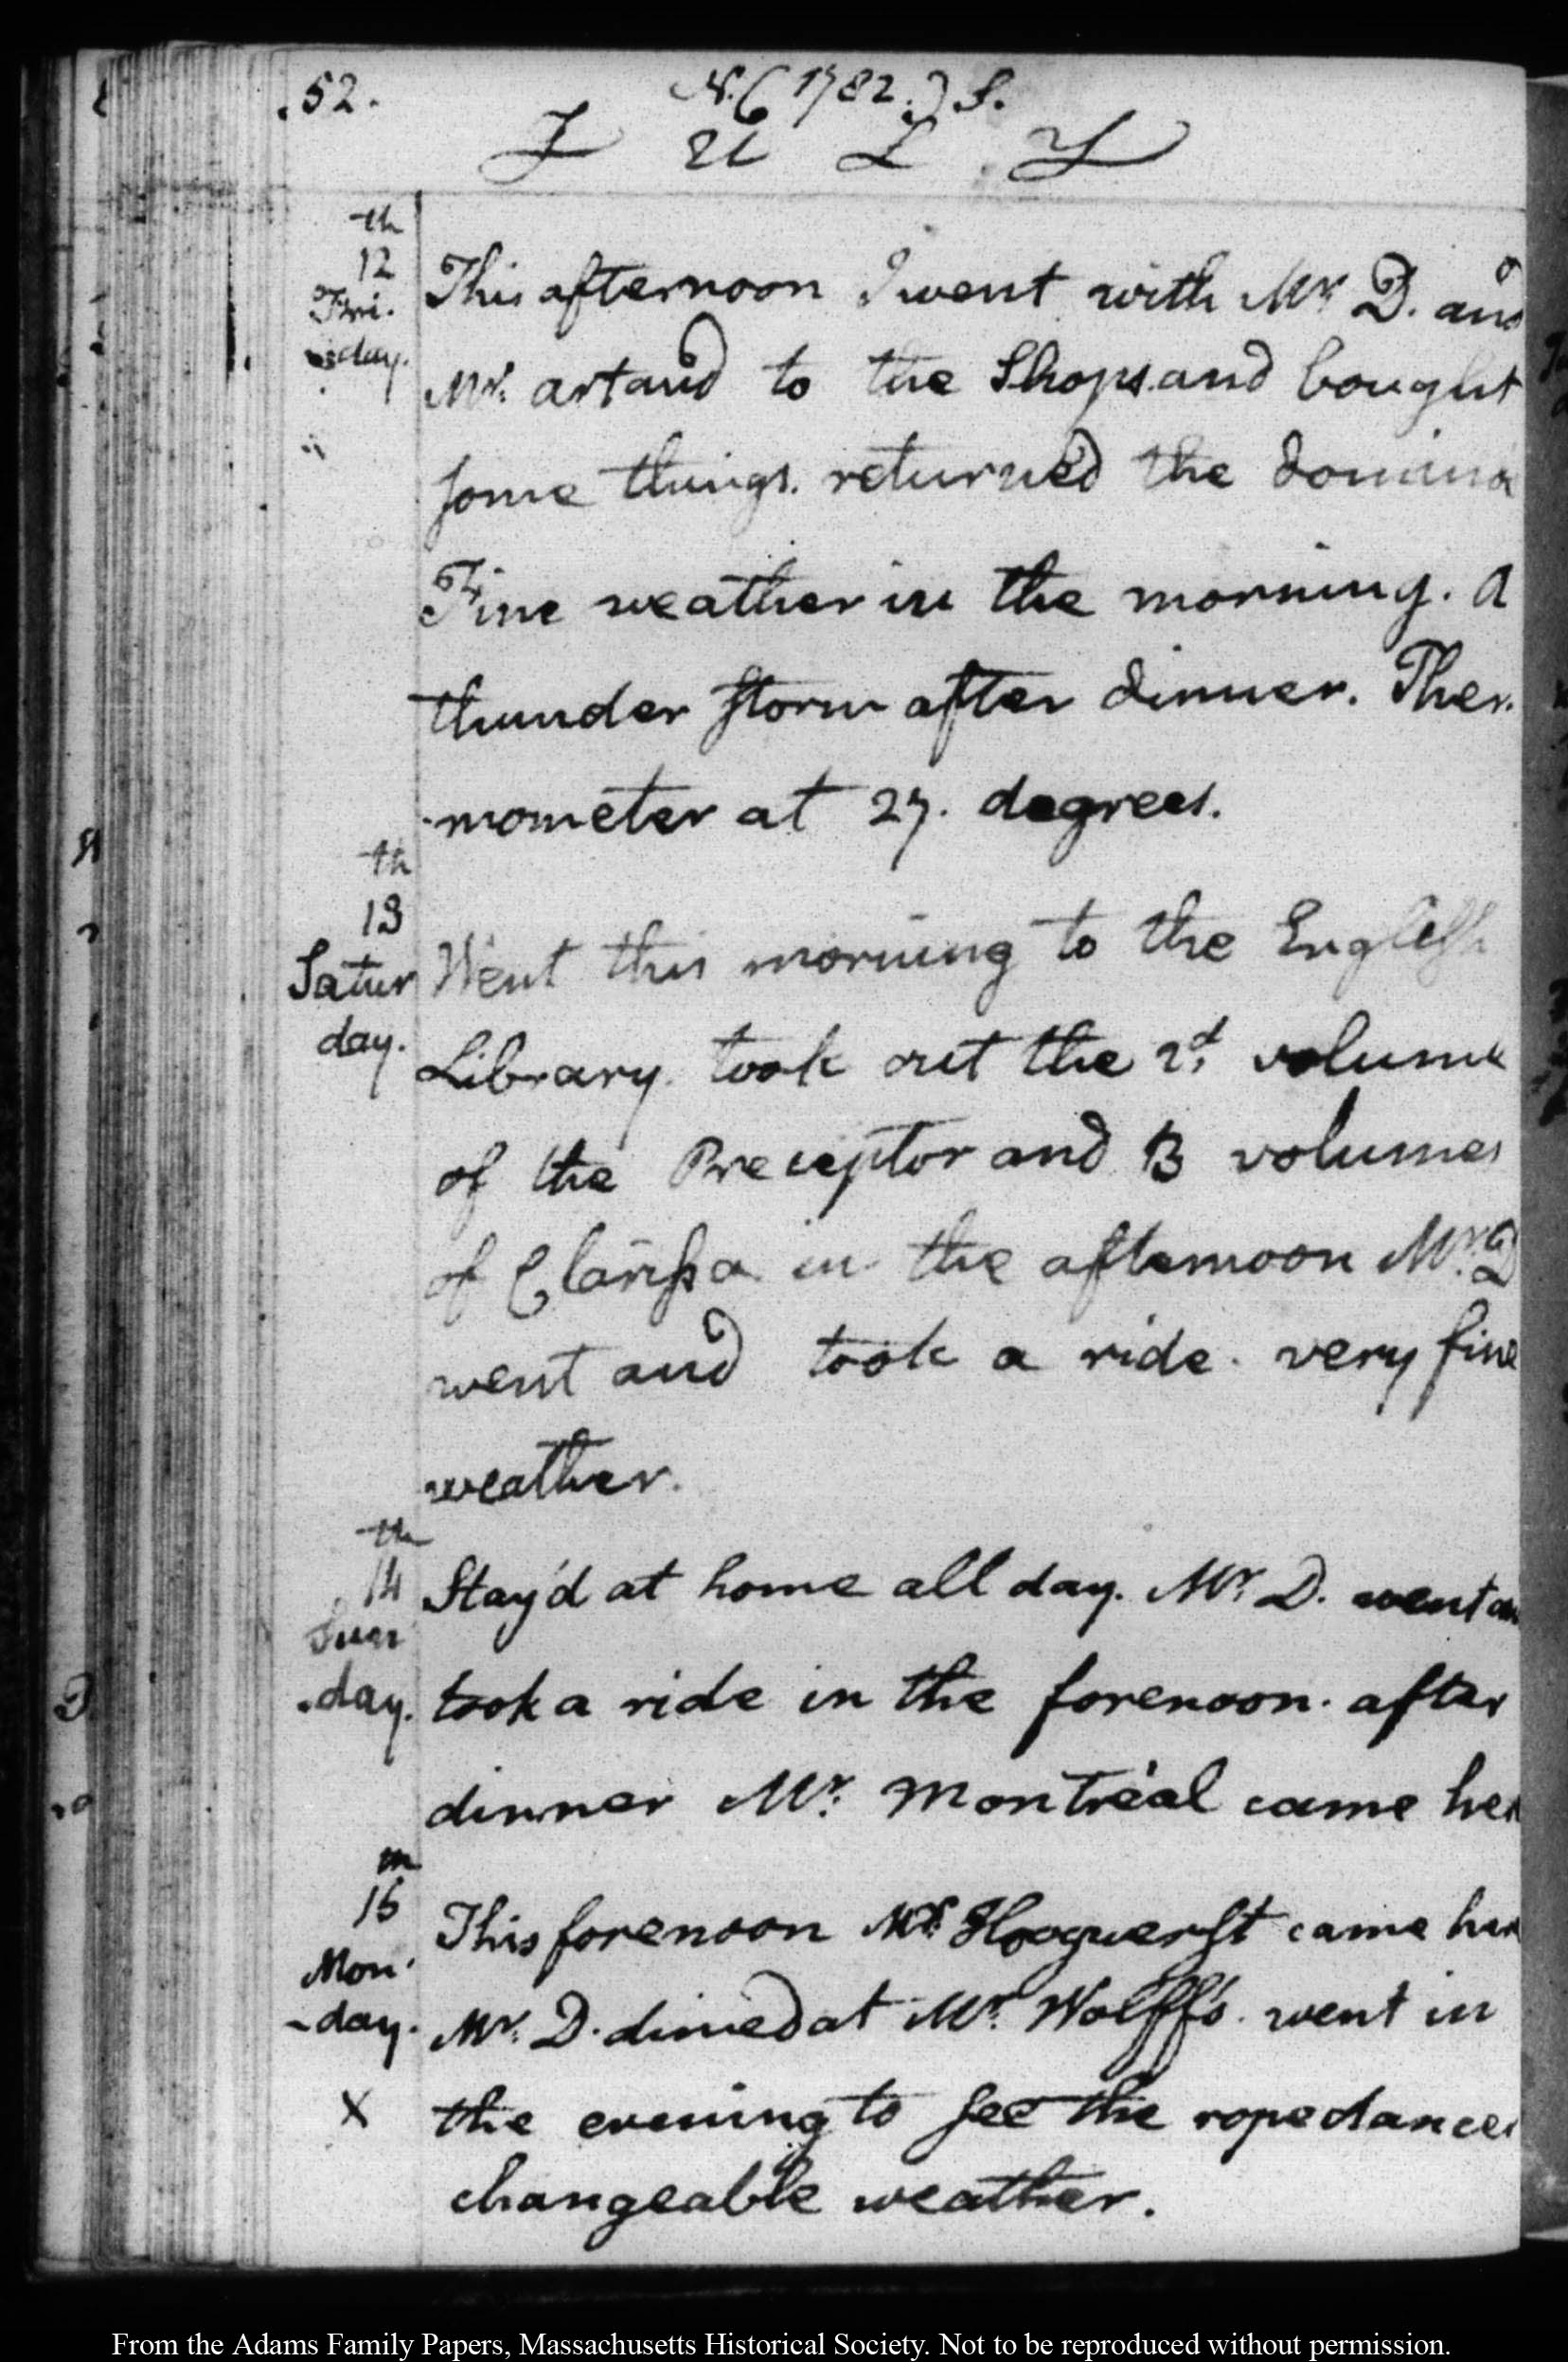 .52. N.( 1782.) S.
J U L Y
th
12
Fri.
day.
This afternoon I went with Mr. D. and
Mr. artaud to the Shops. and bought
some things. returned the
Fine weather in the morning. A
thunder storm after dinner. Ther.
mometer at 27. degrees.
th
13
Satur
day.
Went this morning to the English
Library. took out the 2d. volume
of the Preceptor and 3 volumes
of Clarissa in the afternoon Mr. D
went and took a ride. very fine
weather.
th
14
Sun
-day.
Stay'd at home all day. Mr. D. went an
took a ride in the forenoon. after
dinner Mr. Montréal came her
15
Mon.
-day.
X
This forenoon Mr. Hooguerst came her
Mr. D. dined at Mr. Wolff's. went in
the evening to see the rope dancer
changeable weather.
From the Adams Family Papers, Massachusetts Historical Society. Not to be reproduced without permission.